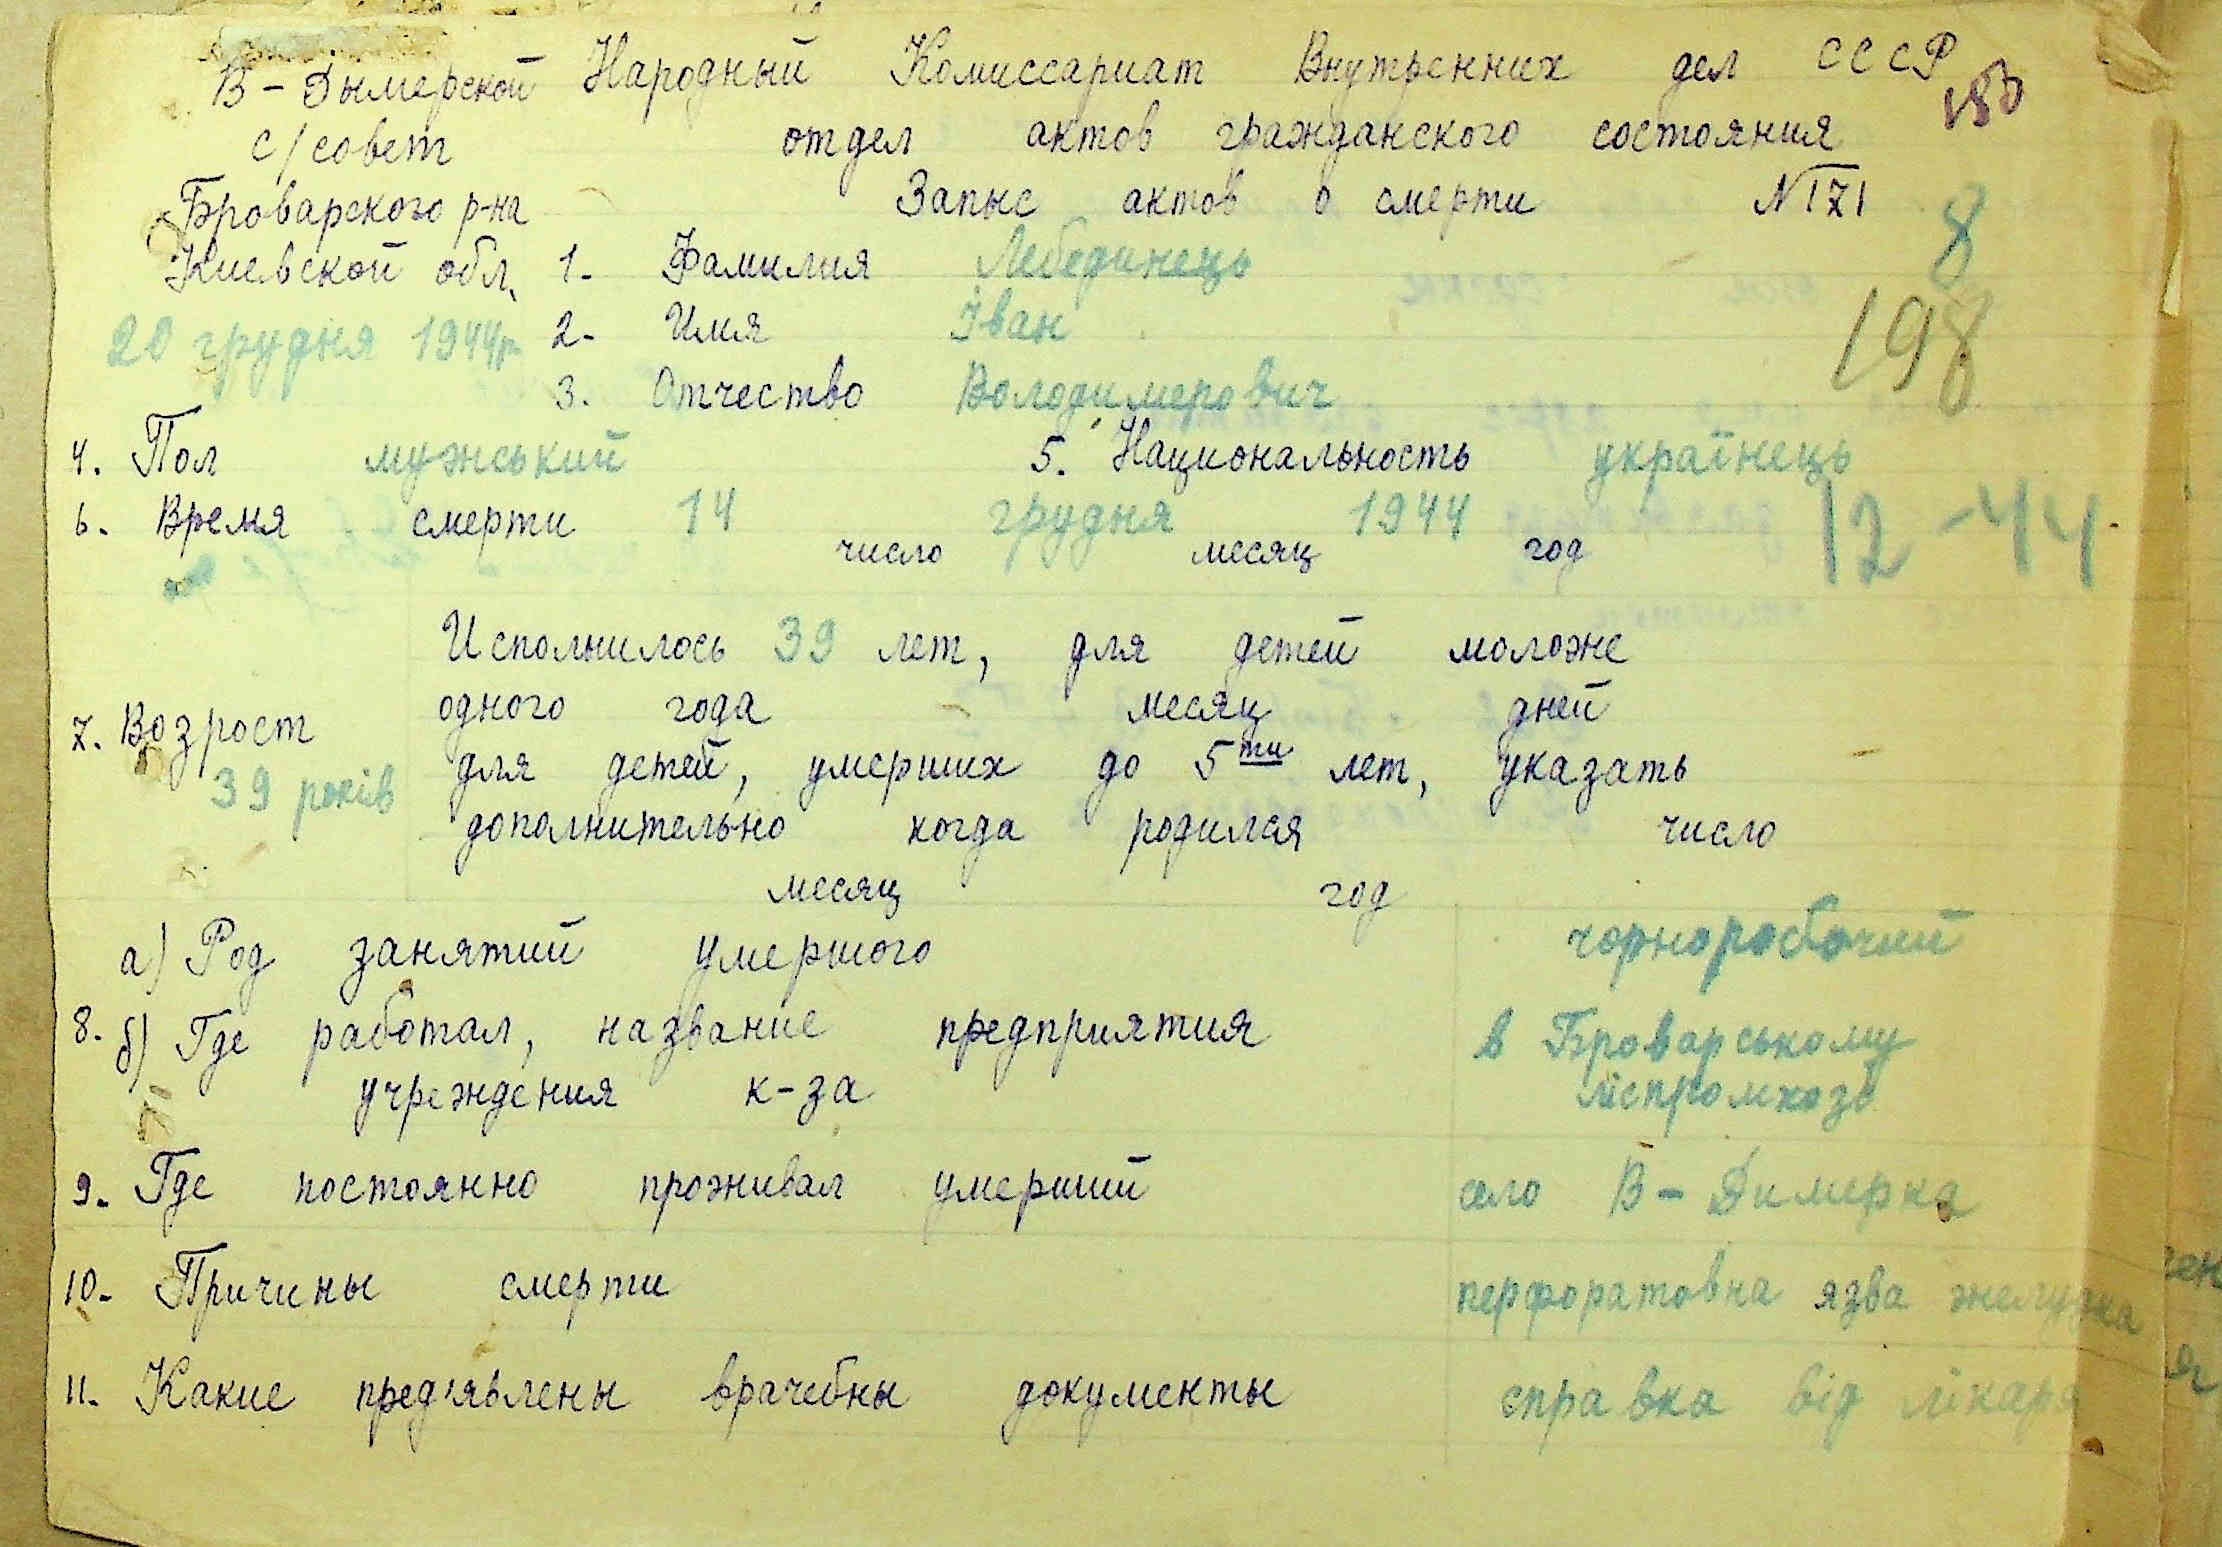 В-Дымерской
с/совет
Броварского р-на
Киевской обл.
20 грудня 1944р.
Народный Комиссариат Внутренних дел СССР
отдел актов гражданского состояния
Запыс актов о смерти N 171
8
198
1- Фамилия Лебединець
2- Имя Іван
3. Отчество Володимерович
4. Пол мужський 5. Национальность українець
6. Время смерти 14 грудня 1944
число месяц год
12-44
7. Возрост
39 років
Исполнилось 39 лет, для детей моложе
одного года месяц дней
для детей, умерших до 5ти лет, указать
дополнительно когда родился число
месяц год
8. а) Род занятий умершого чорноробочий
б) Где работал, название предприятия в Броварському
учреждения к-за ліспромхозі
9. Где постоянно проживал умерший село В-Димерка
10. Причины смерти перфоратовна язва желудка
11. Какие пред'явлены врачебны документы справка від лікаря